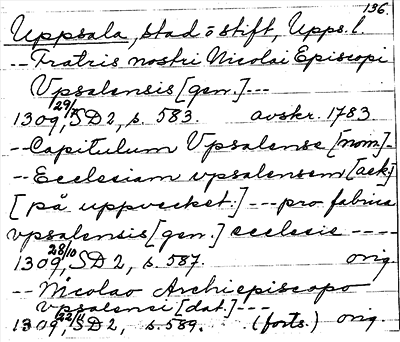 136.
Uppsala, stad o stift, Upps. l.
-- Fratris nostri Nicolai Episcopi
Vpsalensis [gen.] ---
1309 29/7, SD 2, s. 583. avskr. 1783
-- Capitulum Vpsalense [nom] -
-- Ecclesiam vpsalensem [ack]
[på uppvecket:] --- pro fabrica
vpsalensis [gen.] ecclesie ----
1309 28/10, SD 2, s. 587. orig.
-- Nicolao Archiepiscopo
vpsalensi [dat.] ---
1309 22/11, SD 2, s. 589. (forts.) orig.